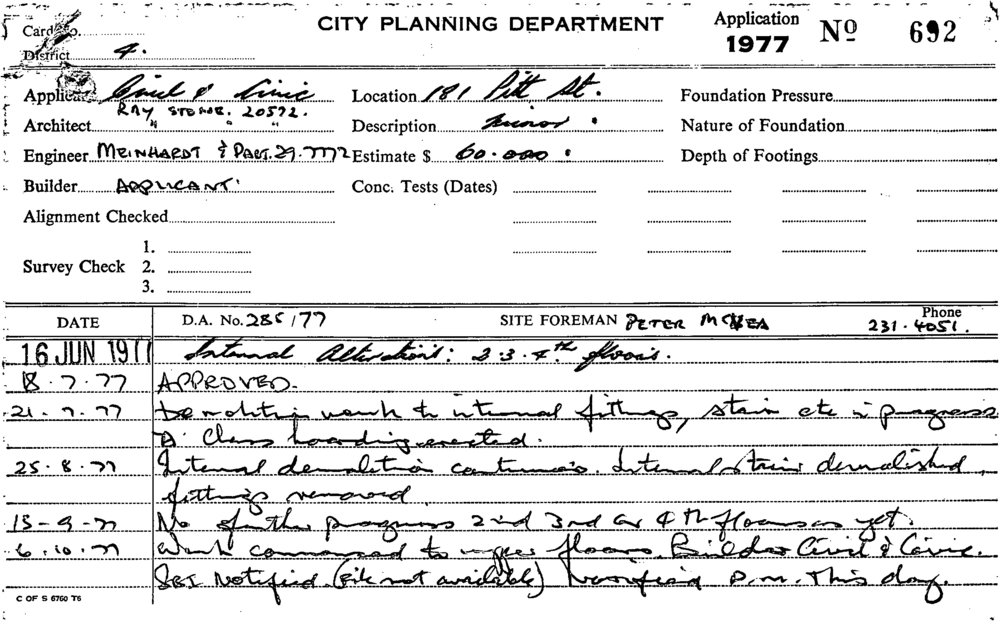 Card No.
CITY PLANNING DEPARTMENT
Application 1977
Nº 692
District 4.
Applicant Civil & Civic
Location 181 Pitt St.
Foundation Pressure
RAY 20572.
Architect " " "
Description Minor.
Nature of Foundation
Engineer MEINHARDT & PART. 29.7772
Estimate $ 60.000.
Depth of Footings
Builder APPLICANT.
Conc. Tests (Dates)
Alignment Checked
1.
Survey Check 2.
3.
DATE
D.A. No. 285/77
SITE FOREMAN PETER
Phone 231.4051.
16 JUN 197 Internal Alterations: 2.3.4th floors.
8.7.77 APPROVED.
21.7.77 Demolition work to internal fittings, stair etc in progress
'D' Class hoarding erected.
25.8.77 Internal demolition continues. Internal stairs demolished,
fittings removed
13-9-77 No further progress 2nd 3rd or 4th floors as yet.
6.10.77 Work commenced to upper floors. Builder Civil & Civic.
SBI Notified (File not available) P.M. This day.
C OF S 6760 T6